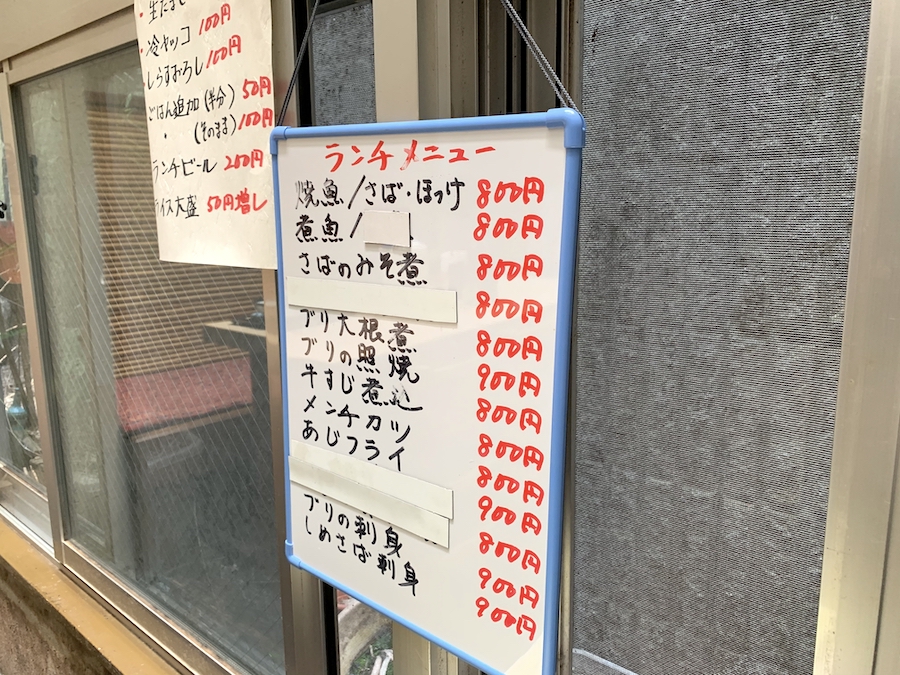 ・生たまご
・冷ヤッコ 100円
しらすおろし 100円
ごはん追加(半分) 50円
・ (そのまま) 100円
ランチビール 200円
ライス大盛 50円増し
ランチメニュー
焼魚/さば・ほっけ 800円
煮魚/ 800円
さばのみそ煮 800円
800円
ブリ大根煮 800円
ブリの照焼 900円
牛すじ煮込 800円
メンチカツ 800円
あじフライ 800円
900円
800円
ブリの刺身 900円
しめさば刺身 900円